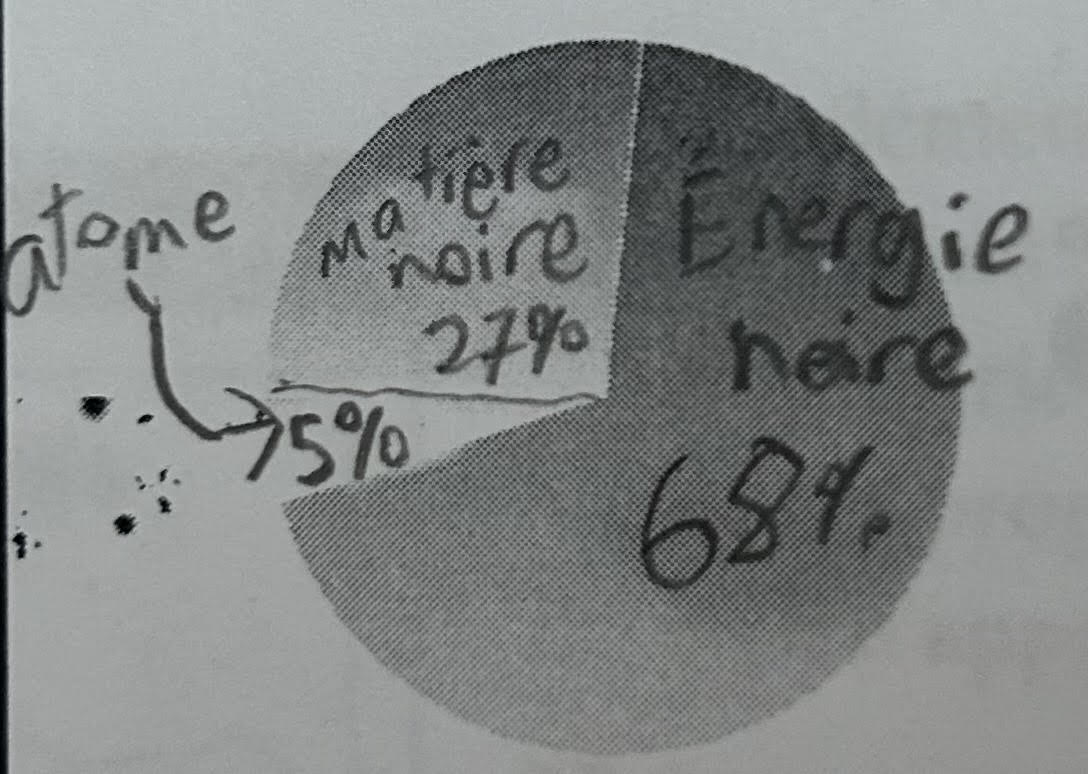 atome
matière
noire
27%
5%
Énergie
noire
68%